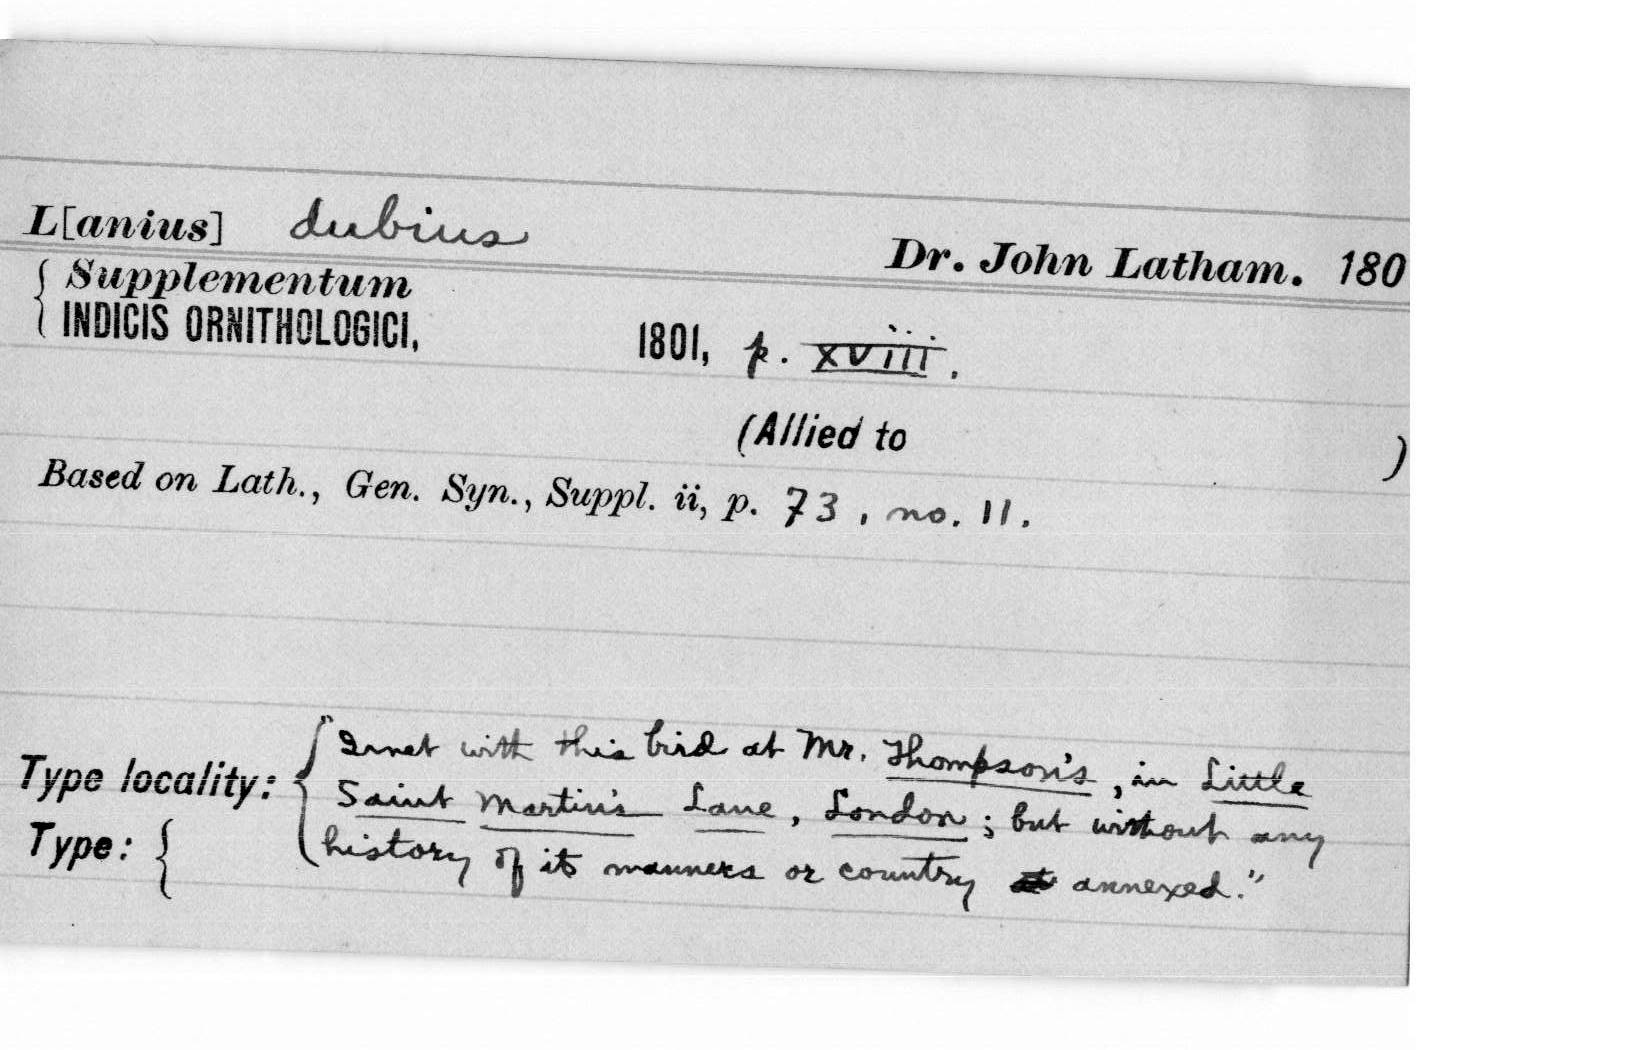 L[anius] dubius Dr. John Latham. 180
{ Supplementum
INDICIS ORNITHOLOGICI, 1801, p. xviii.
(Allied to )
Based on Lath., Gen. Syn., Suppl. ii, p. 73, no. 11.
Type locality: { "I met with this bird at Mr. Thompson's, in Little
Saint Martin's Lane, London; but without any
Type: { history of its manners or country annexed."